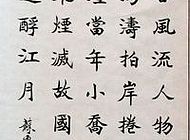 古風流人物
濤拍岸捲
當年小喬
煙滅故國
酹江月
蘇